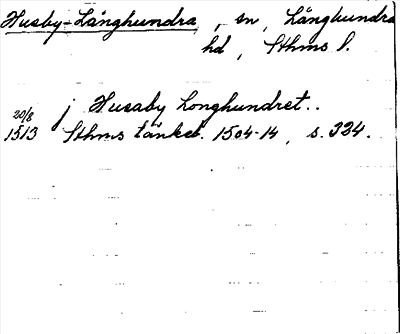 Husby-Långhundra, sn, Långhundra
hd, Sthms l.
20/8 j Husaby Longhundret..
1513 Sthms tänkeb. 1504-14, s. 324.